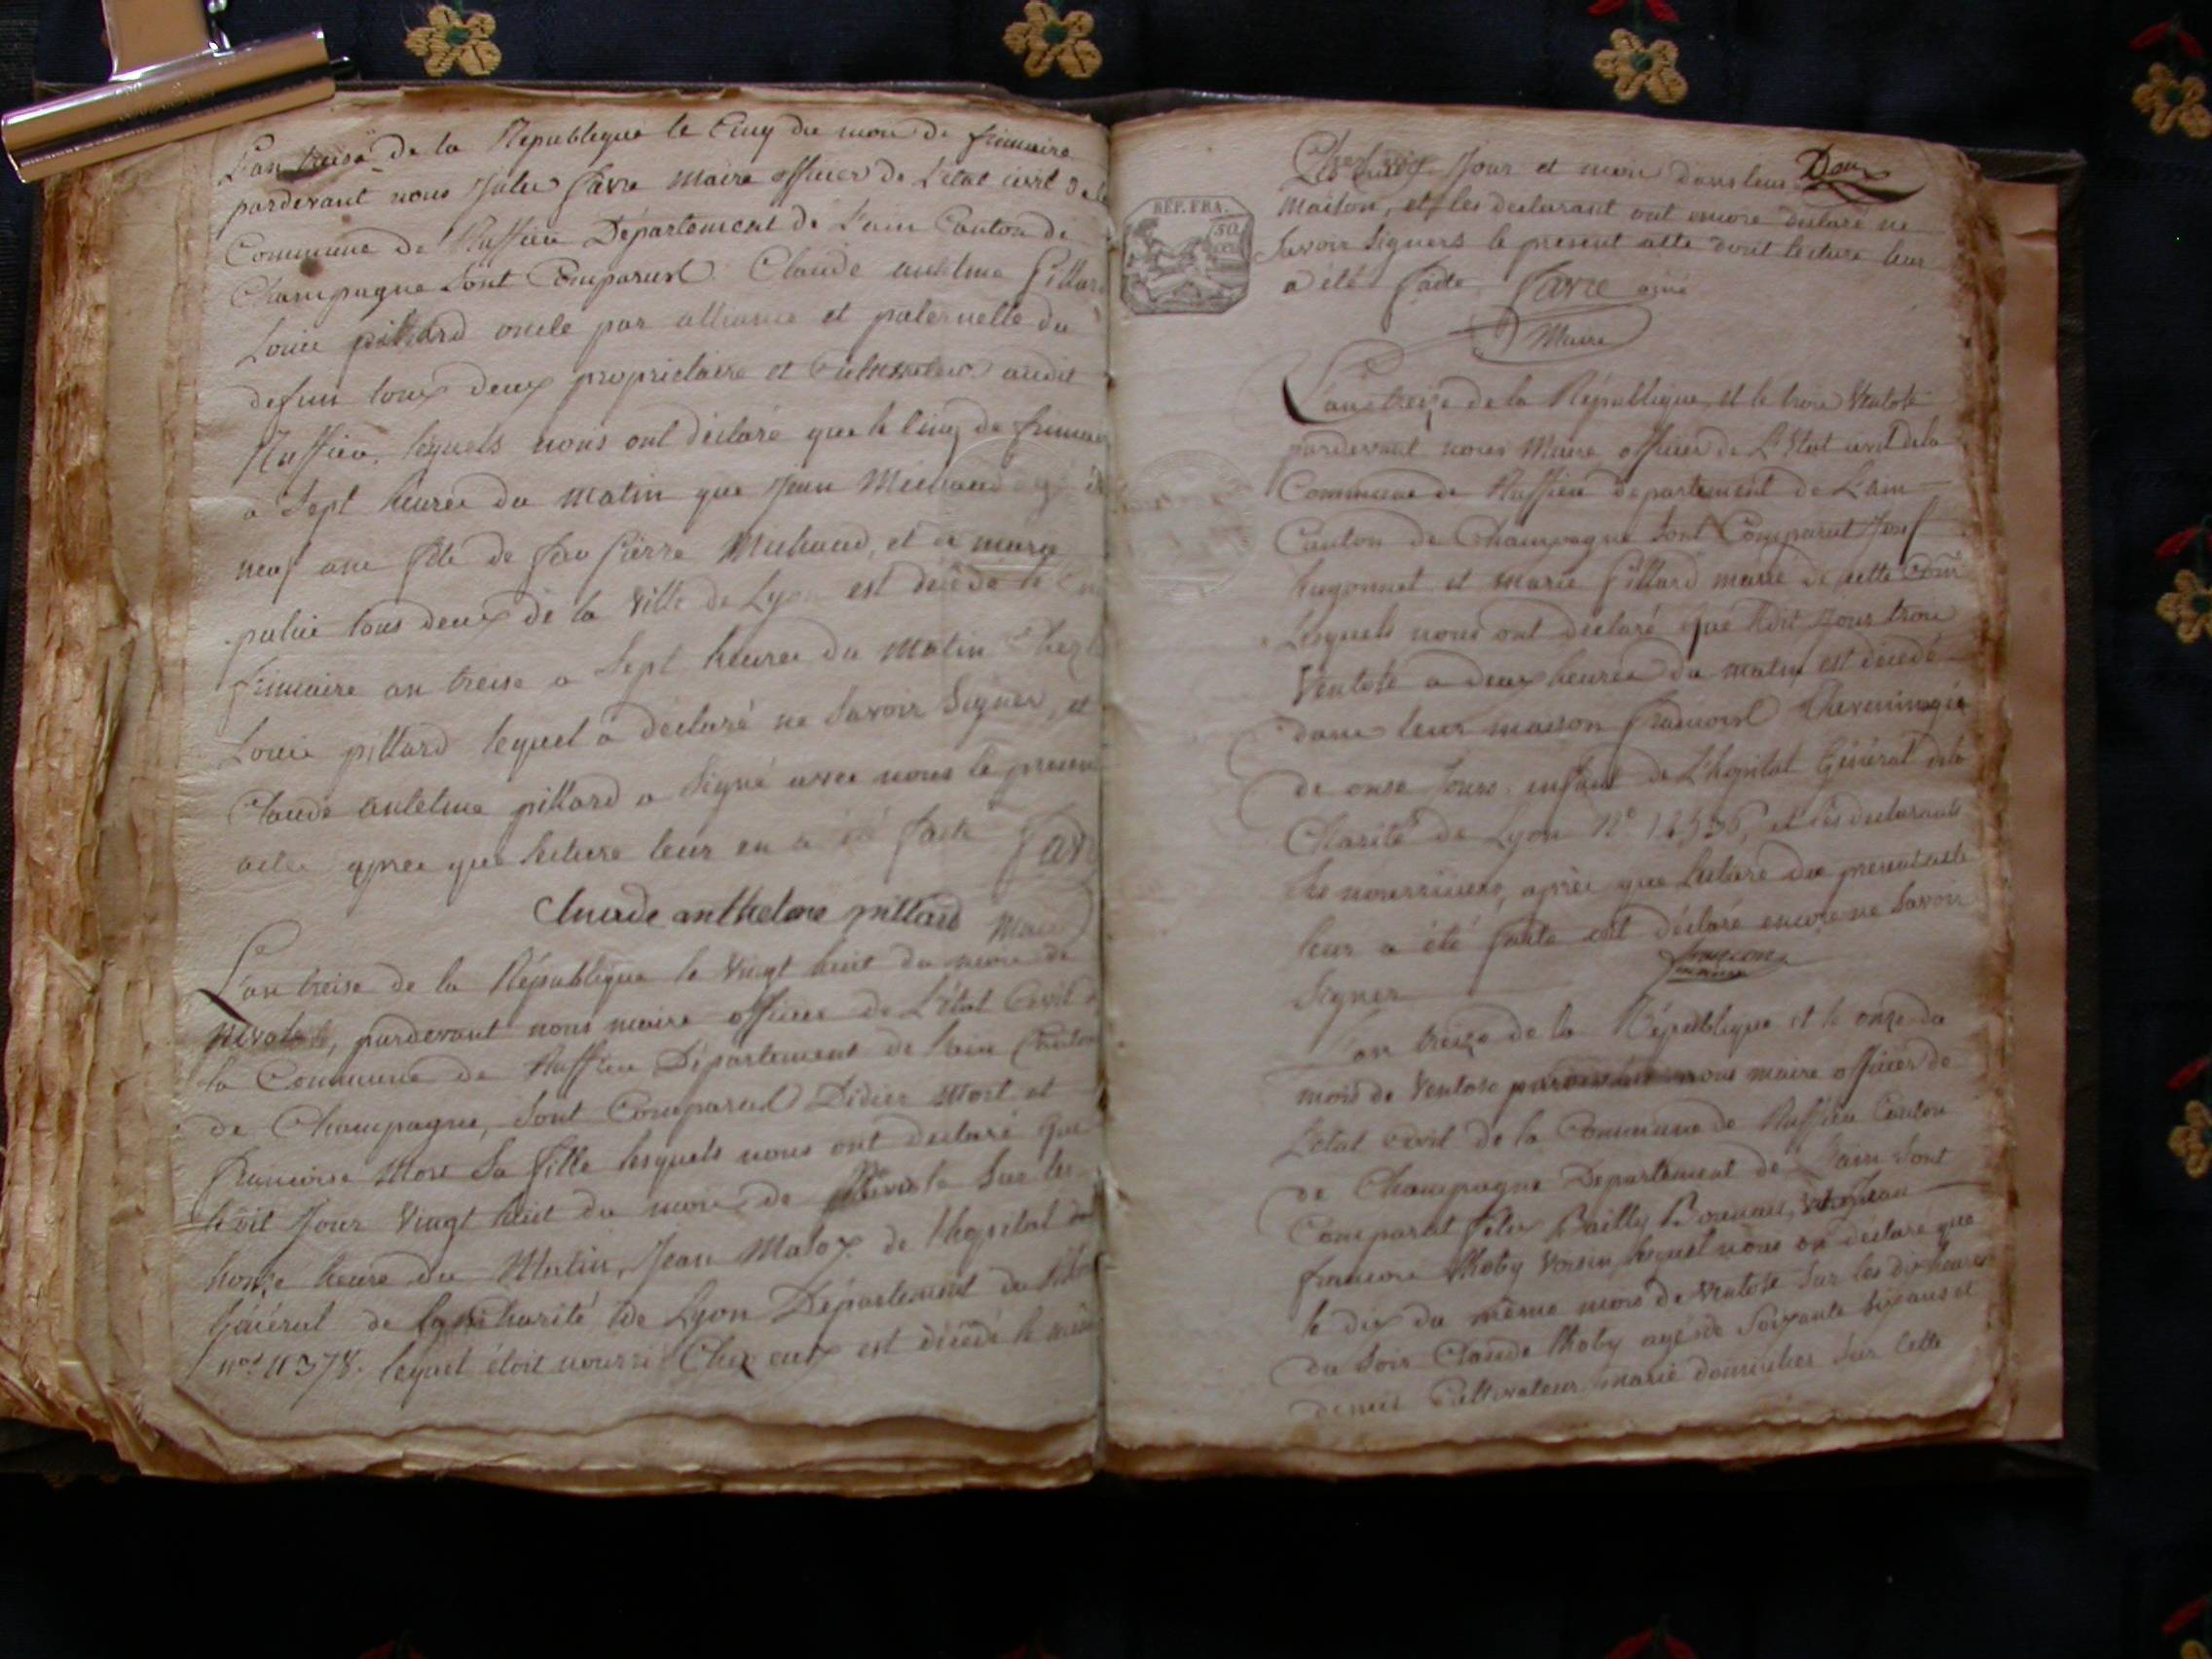 L'an treise de la Republique le Cinq du mois de frimaire
pardevant nous Jules favre Maire officier de L'état civil de la
Commune de Ruffieu Département de L'ain Canton de
Champagne Sont Comparus Claude antelme pillard
Louis pillard oncle par alliance et paternelle du
defun tous deux propriétaire et Cultivateur audit
Ruffieu, lequels nous ont déclaré que le Cinq de frimaire
a Sept heures du Matin que Jean Michaud
neuf ans fils de feu pierre Michaud, et de marie
tous deux de la Ville de Lyon est décédé le
frimaire an treise a Sept heures du Matin Chez
Louis pillard lequel a déclaré ne Savoir Signer, et
Claude antelme pillard a Signé avec nous le present
acte apres que lecture leur en a été faite favre
Claude anthelme pillard Maire
L'an treise de la République le Vingt huit du mois de
Nivose, pardevant nous maire officier de L'état Civil de
la Commune de Ruffieu Département de l'ain Canton
de Champagne, Sont Comparus Didier Mort et
francoise Mort Sa fille lesquels nous ont declaré que
le dit Jour Vingt huit du mois de Nivose Sur les
honze heure du Matin, Jean de l'hopital
Général de la Charité de Lyon Département du
lequel étoit nourri Chez eux est décédé le même
REP. FRA.
50
Jour et mois dans leur
Maison, et les declarant ont encore declaré ne
Savoir Signers le present acte dont lecture leur
a été faite favre
Maire
L'an treize de la République, et le trois Ventose
pardevant nous Maire officier de L'Etat civil de la
Commune de Ruffieu departement de L'ain
Canton de Champagne Sont Comparut Josef
hugonnet et marie pillard marié de cette Com
Lesquels nous ont declaré que ledit Jour trois
Ventose a deux heures du matin est décédé
dans leur maison
de onse Jours enfant de L'hopital Général de la
Charité de Lyon N° et les declarants
Ses nourriciers, après que Lecture du present acte
leur a été faite ont déclaré encore ne Savoir
Signer
L'an treize de la République et le onze du
mois de Ventose pardevant nous maire officier de
L'état Civil de la Commune de Ruffieu Canton
de Champagne Departement de l'ain Sont
Comparut
francois Voisin lesquels nous on declaré que
le dix du même mois de Ventose Sur les dix heures
du Soir Claude agé de Soixante Six ans et
demis Cultivateur marié domicilier Sur cette